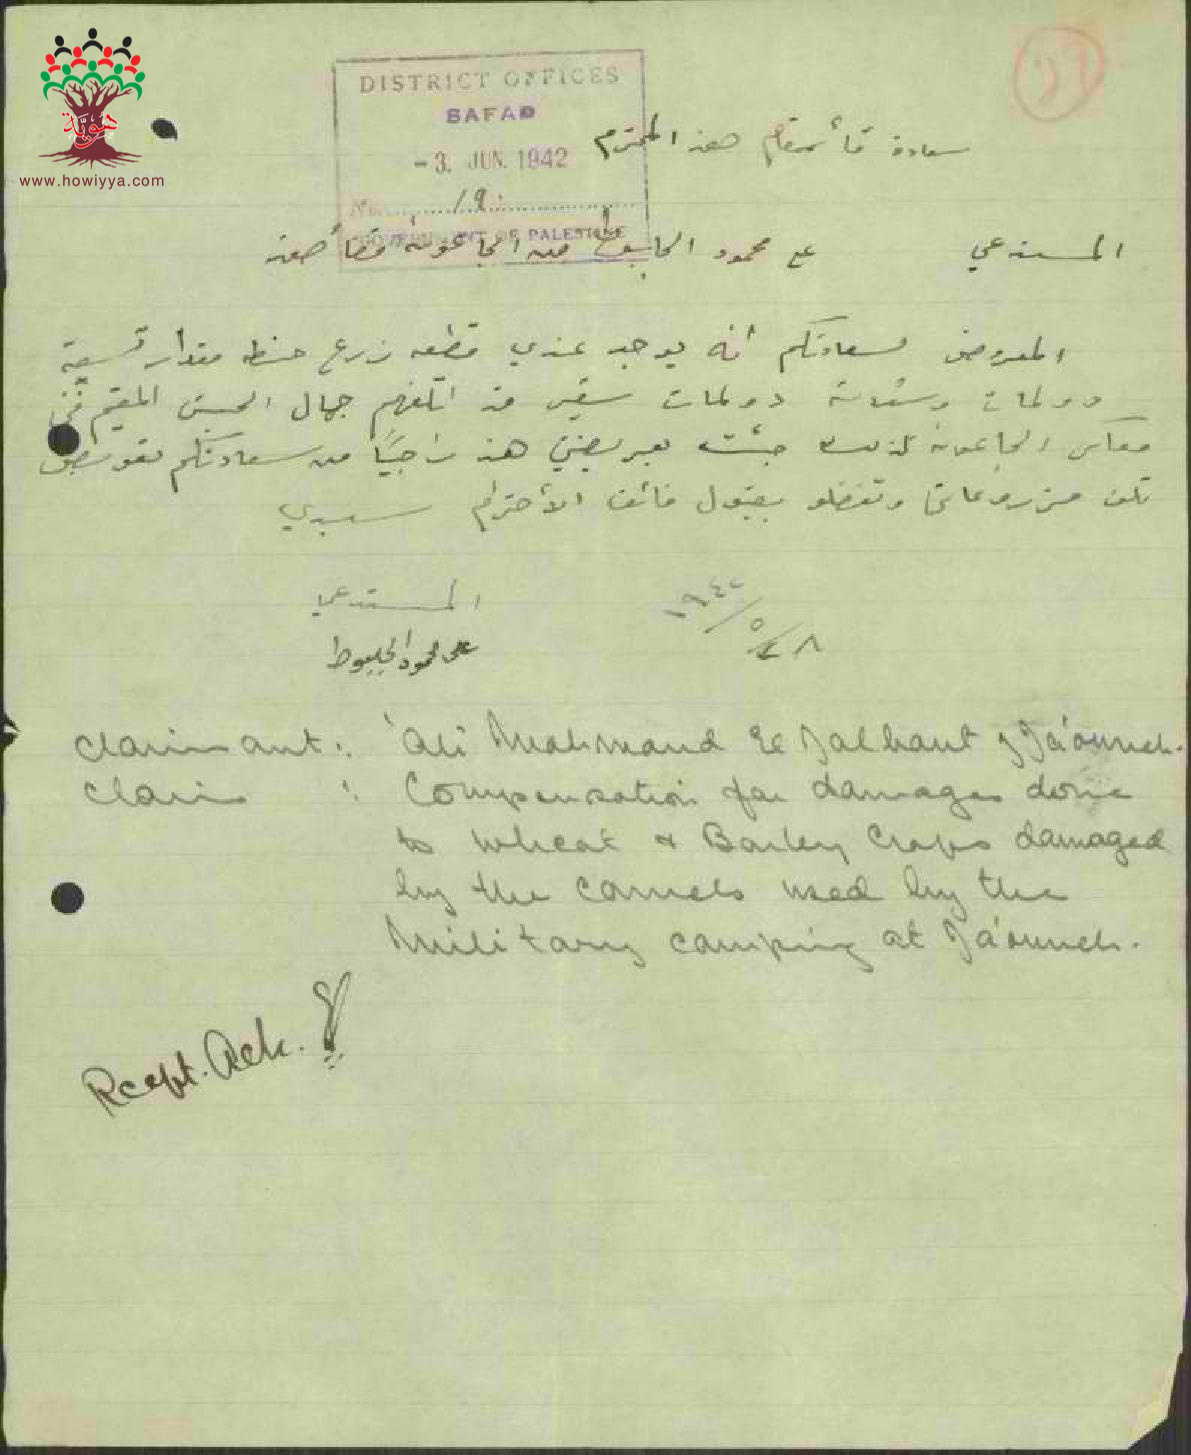 هوية
www.howiyya.com
DISTRICT OFFICES
SAFAD
-3. JUN. 1942
No. 190
GOVERNMENT OF PALESTINE
سعادة قائمقام صفد المحترم
المستدعي علي محمود الجلبوط من الجاعونه قضأ صفد
المعروض لسعادتكم انه يوجد عندي قطعه زرع حنطه مقدار تسعة
دولمات وثلاثة دولمات شعير قد اتلفهم جمال الجيش المقيم في
معكس الجاعونه لذلك جئت بعريضتي هذه راجيًا من سعادتكم تعويض
تلف مزروعاتي وتفضلو بقبول فائق الأحترام سيدي
المستدعي
علي محمود الجلبوط
٢٨/٥/١٩٤٢
Claimant : 'Ali Mahmoud El Jalbout of Ja'ouneh.
Claim : Compensation for damages done
to wheat & Barley Crops damaged
by the camels used by the
Military camping at Ja'ouneh.
Rcept. Ack.